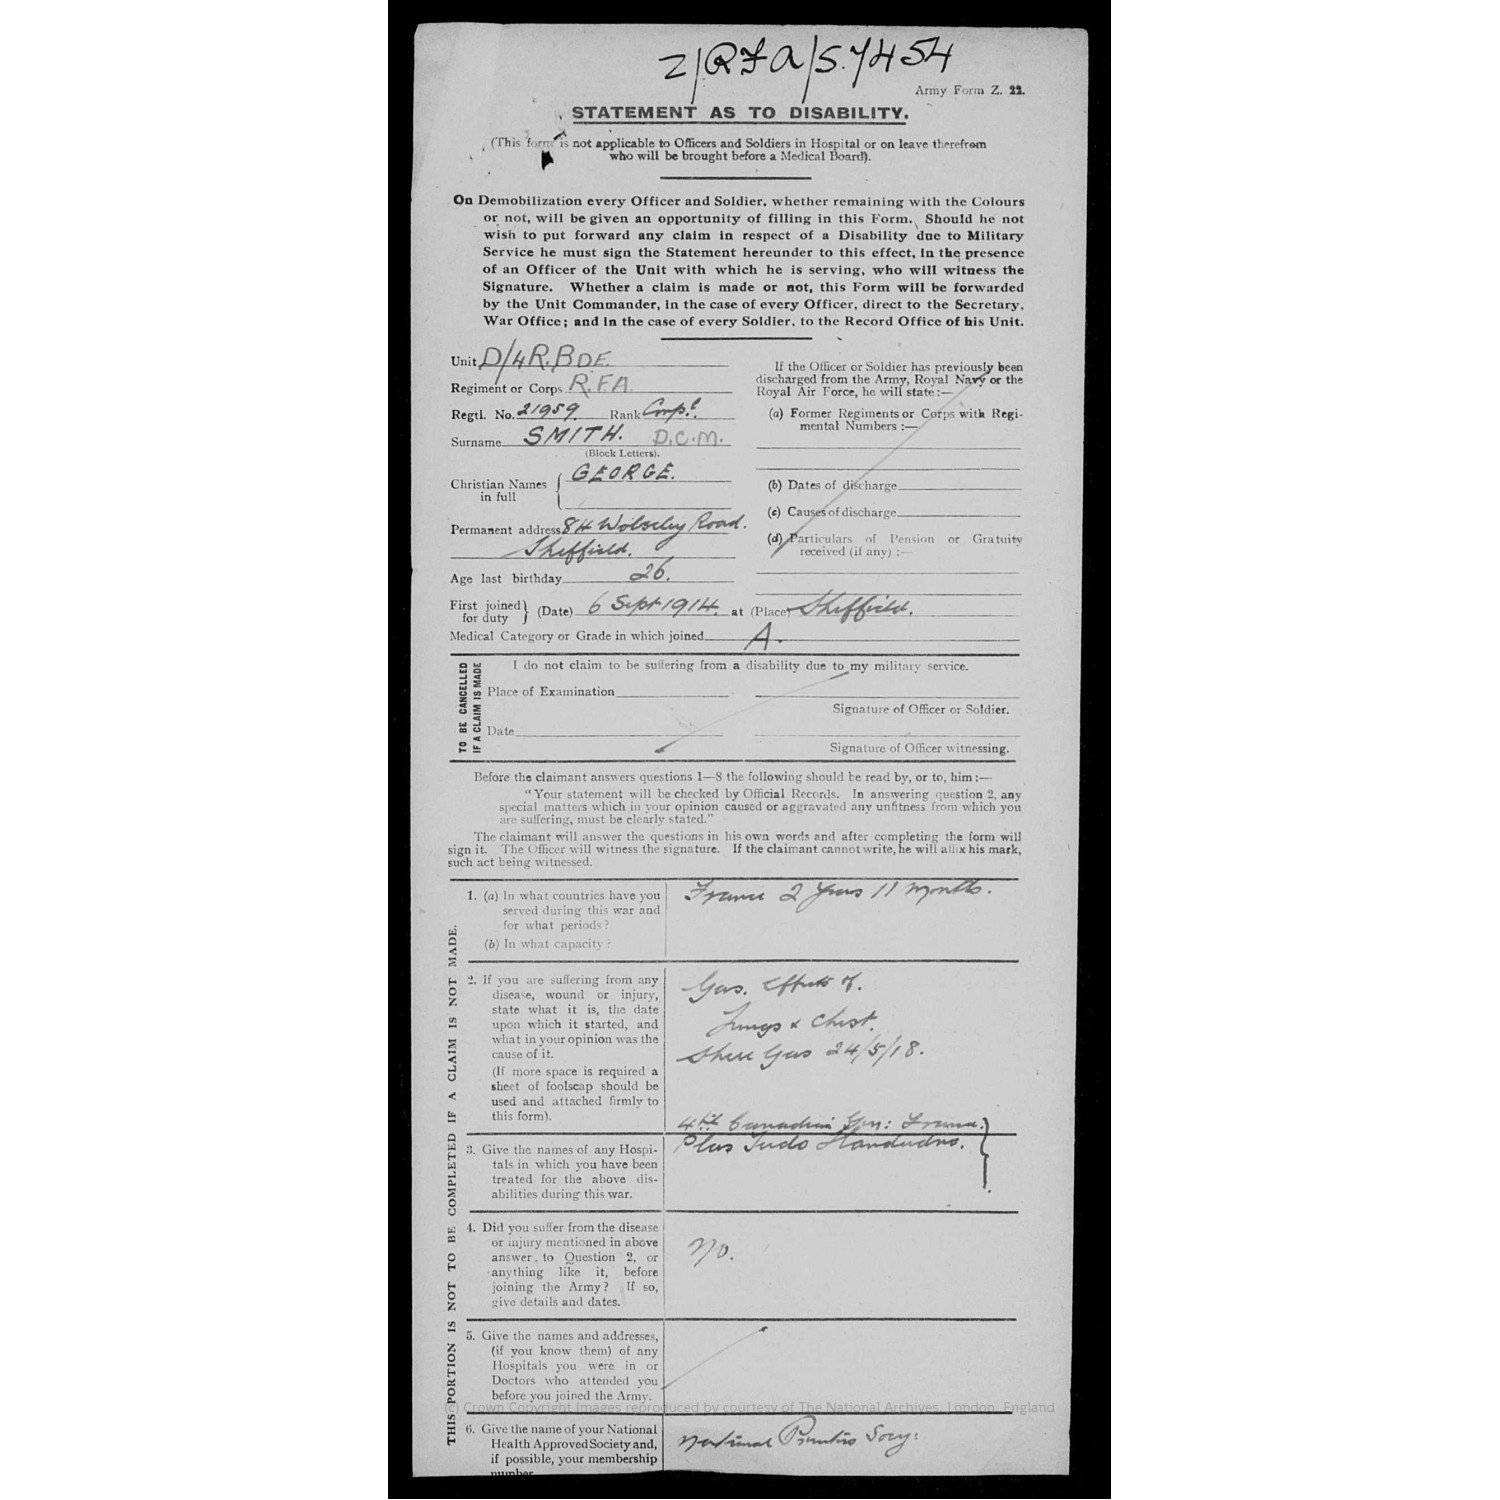 Z/RFA/S.7454
Army Form Z. 22.
STATEMENT AS TO DISABILITY.
(This form is not applicable to Officers and Soldiers in Hospital or on leave therefrom
who will be brought before a Medical Board).
On Demobilization every Officer and Soldier, whether remaining with the Colours
or not, will be given an opportunity of filling in this Form. Should he not
wish to put forward any claim in respect of a Disability due to Military
Service he must sign the Statement hereunder to this effect, in the presence
of an Officer of the Unit with which he is serving, who will witness the
Signature. Whether a claim is made or not, this Form will be forwarded
by the Unit Commander, in the case of every Officer, direct to the Secretary,
War Office; and in the case of every Soldier, to the Record Office of his Unit.
Unit D/4R.BDE.
Regiment or Corps R.F.A.
Regtl. No. 21959 Rank Corpl.
Surname SMITH. D.C.M.
(Block Letters).
Christian Names in full GEORGE.
Permanent address 84 Wolseley Road.
Sheffield.
Age last birthday 26.
If the Officer or Soldier has previously been
discharged from the Army, Royal Navy or the
Royal Air Force, he will state:—
(a) Former Regiments or Corps with Regi-
mental Numbers :—
(b) Dates of discharge
(c) Causes of discharge
(d) Particulars of Pension or Gratuity
received (if any) :—
First joined for duty } (Date) 6 Sept 1914. at (Place) Sheffield.
Medical Category or Grade in which joined A.
TO BE CANCELLED
IF A CLAIM IS MADE
I do not claim to be suffering from a disability due to my military service.
Place of Examination
Signature of Officer or Soldier.
Date
Signature of Officer witnessing.
Before the claimant answers questions 1—8 the following should be read by, or to, him :—
"Your statement will be checked by Official Records. In answering question 2, any
special matters which in your opinion caused or aggravated any unfitness from which you
are suffering, must be clearly stated."
The claimant will answer the questions in his own words and after completing the form will
sign it. The Officer will witness the signature. If the claimant cannot write, he will affix his mark,
such act being witnessed.
THIS PORTION IS NOT TO BE COMPLETED IF A CLAIM IS NOT MADE.
1. (a) In what countries have you
served during this war and
for what periods?
(b) In what capacity?
France 2 years 11 months.
2. If you are suffering from any
disease, wound or injury,
state what it is, the date
upon which it started, and
what in your opinion was the
cause of it.
(If more space is required a
sheet of foolscap should be
used and attached firmly to
this form).
Gas. Effects of.
Lungs & Chest.
Gas 24/5/18.
3. Give the names of any Hospi-
tals in which you have been
treated for the above dis-
abilities during this war.
4th Canadian Gen: France.
Plas Tudo Llandudno.
4. Did you suffer from the disease
or injury mentioned in above
answer to Question 2, or
anything like it, before
joining the Army? If so,
give details and dates.
No.
5. Give the names and addresses,
(if you know them) of any
Hospitals you were in or
Doctors who attended you
before you joined the Army.
(c) Crown Copyright Images reproduced by courtesy of The National Archives, London, England
6. Give the name of your National
Health Approved Society and,
if possible, your membership
number.
National Socy: